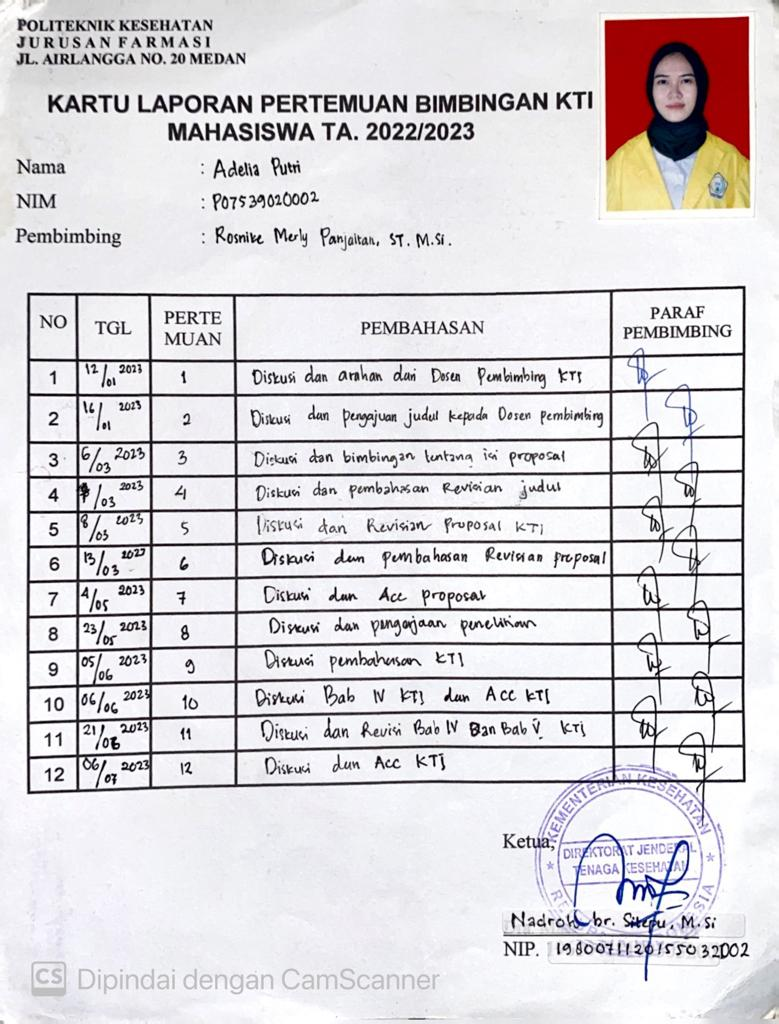 POLITEKNIK KESEHATAN
JURUSAN FARMASI
JL. AIRLANGGA NO. 20 MEDAN
KARTU LAPORAN PERTEMUAN BIMBINGAN KTI
MAHASISWA TA. 2022/2023
Nama : Adelia Putri
NIM : P07539020002
Pembimbing : Rosnike Merly Panjaitan, ST. M.Si.
NO TGL PERTE MUAN PEMBAHASAN PARAF PEMBIMBING
1 12/01 2023 1 Diskusi dan arahan dari Dosen Pembimbing KTI
2 16/01 2023 2 Diskusi dan pengajuan judul kepada Dosen pembimbing
3 6/03 2023 3 Diskusi dan bimbingan tentang isi proposal
4 /03 2023 4 Diskusi dan pembahasan Revisian judul
5 8/03 2023 5 Diskusi dan Revisian Proposal KTI
6 13/03 2023 6 Diskusi dan pembahasan Revisian proposal
7 4/05 2023 7 Diskusi dan Acc proposal
8 23/05 2023 8 Diskusi dan pengerjaan penelitian
9 05/06 2023 9 Diskusi pembahasan KTI
10 06/06 2023 10 Diskusi Bab IV KTI dan Acc KTI
11 21/06 2023 11 Diskusi dan Revisi Bab IV Dan Bab V KTI
12 06/07 2023 12 Diskusi dan Acc KTI
Ketua,
KEMENTERIAN KESEHATAN
DIREKTORAT JENDERAL
TENAGA KESEHATAN
Nadroh br. Sitepu, M.Si
NIP. 198007112015032002
CS Dipindai dengan CamScanner